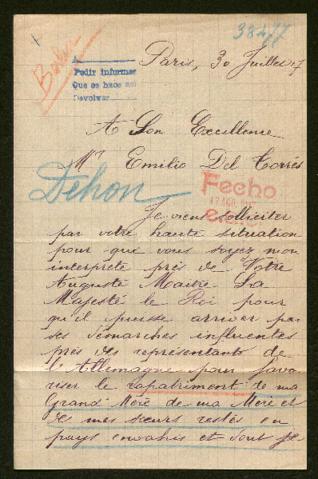 38477
Paris, 30 Juillet 17
Pedir informes
Que se hace
Devolver
A Son Excellence
Mr Emilio Del Torrés
Dehon
Fecho
17 AGO.
Je viens solliciter
par votre haute situation
pour que vous soyez mon
interprète près de Votre
Auguste Maître Sa
Majesté le Roi pour
qu'il puisse arriver par
ses démarches influentes
près des représentants de
l'Allemagne pour favo
riser le rapatriment de ma
Grand Mère de ma Mère et
de mes sœurs restés en
pays envahis et dont je